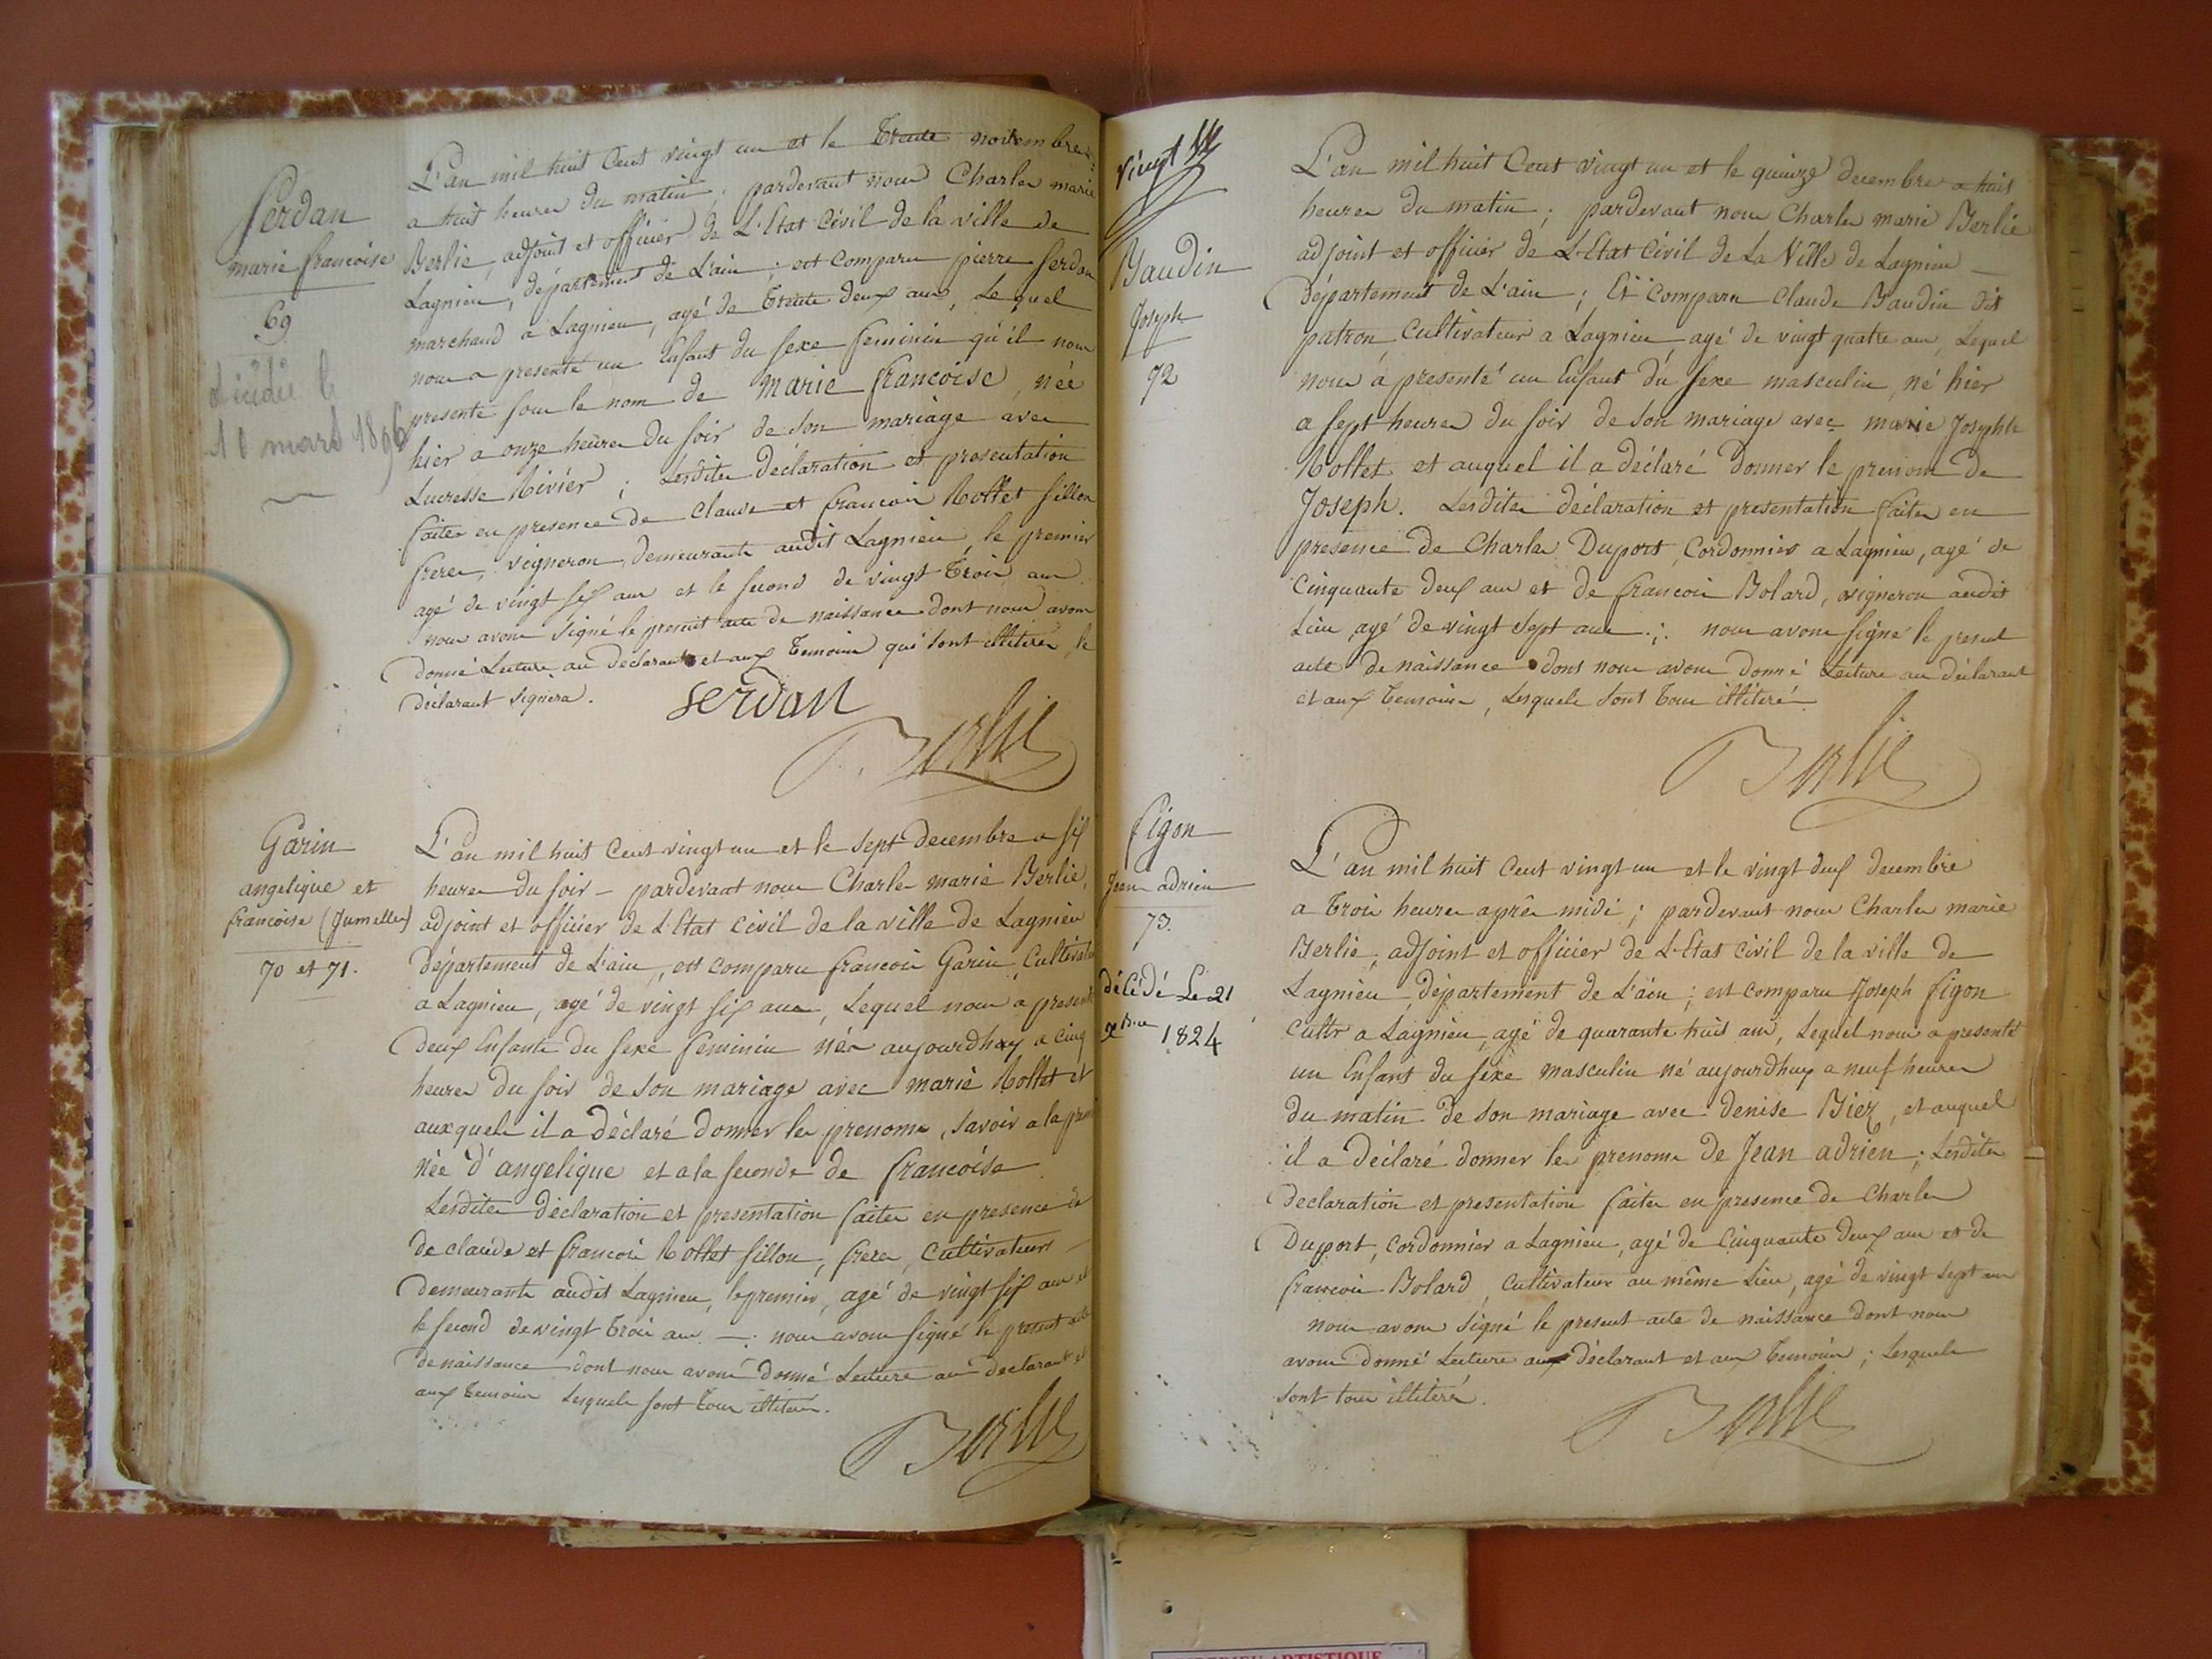 Serdan
marie francoise
69
décédée le
11 mars 1896
L'an mil huit Cent vingt un et le Trente novembre
a huit heures du matin; pardevant nous Charles marie
Berlie, adjoint et officier de L'Etat Civil de la ville de
Lagnieu, département de L'ain; est Comparu pierre Serdan
marchand a Lagnieu, agé de Trente deux ans, Lequel
nous a presenté un Enfant du sexe feminin qu'il nous
presente sous le nom de Marie francoise, née
hier a onze heures du soir de son mariage avec
Lucresse Rivier; Lesdites déclaration et presentation
faites en presence de claude et francois Rollet fillon
freres, vigneron demeurants audit Lagnieu, le premier
agé de vingt six ans et le second de vingt Trois ans
nous avons signé le present acte de naissance dont nous avons
donné Lecture au declarant et aux Temoins qui sont illiterés, le
déclarant signera.
serdan
Berlie
Garin
angelique et
francoise (Jumelles)
70 et 71.
L'an mil huit Cent vingt un et le sept decembre a six
heures du soir – pardevant nous Charles marie Berlie,
adjoint et officier de L'Etat civil de la ville de Lagnieu
département de L'ain, est comparu francois Garin, Cultivate
a Lagnieu, agé de vingt six ans, Lequel nous a presenté
deux Enfants du sexe feminin nés aujourdhuy a cinq
heures du soir de son mariage avec marie Rollet et
auxquels il a déclaré donner les prenoms, savoir a la premi
née d'angelique et a la seconde de francoise
Lesdites déclaration et presentation faites en presence de
de claude et francois Rollet fillon, freres, cultivateurs
demeurants audit Lagnieu, le premier, agé de vingt six ans et
le second de vingt trois ans —: nous avons signé le present acte
de naissance dont nous avons donné Lecture au declarant et
aux Temoins Lesquels sont Tous illiterés.
Berlie
vingt
Baudin
Joseph
72
L'an mil huit Cent vingt un et le quinze decembre a huit
heures du matin; pardevant nous Charles marie Berlie
adjoint et officier de L'Etat Civil de La Ville de Lagnieu —
Département de L'ain; Est Comparu claude Baudin dit
patron, Cultivateur a Lagnieu, agé de vingt quatre ans, Lequel
nous a presenté un Enfant du sexe masculin, né hier
a sept heures du soir de son mariage avec marie Josephte
Rollet et auquel il a déclaré donner le prenom de
Joseph. Lesdites déclaration et presentation faites en
presence de Charles Duport, Cordonnier a Lagnieu, agé de
Cinquante deux ans et de francois Bolard, vigneron audit
Lieu, agé de vingt sept ans .;. nous avons signé le present
acte de naissance dont nous avons donné Lecture au déclarant
et aux Temoins, Lesquels sont Tous illiterés
Berlie
figon
Jean adrien
73.
décédé Le 21
xbre 1824
L'an mil huit Cent vingt un et le vingt deux decembre
a Trois heures après midi; pardevant nous Charles marie
Berlie, adjoint et officier de L'Etat Civil de la ville de
Lagnieu, département de L'ain; est comparu Joseph figon
Cultr a Lagnieu, agé de quarante huit ans, Lequel nous a presenté
un Enfant du sexe masculin né aujourdhuy a neuf heures
du matin de son mariage avec denise Biez, et auquel
il a déclaré donner les prenoms de Jean adrien; Lesdites
declaration et presentation faites en presence de Charles
Duport, cordonnier a Lagnieu, agé de Cinquante Deux ans et de
francois Bolard, Cultivateur au même Lieu, agé de vingt sept ans
nous avons signé le present acte de naissance dont nous
avons donné Lecture aux déclarant et aux Temoins; Lesquels
sont tous illiterés.
Berlie